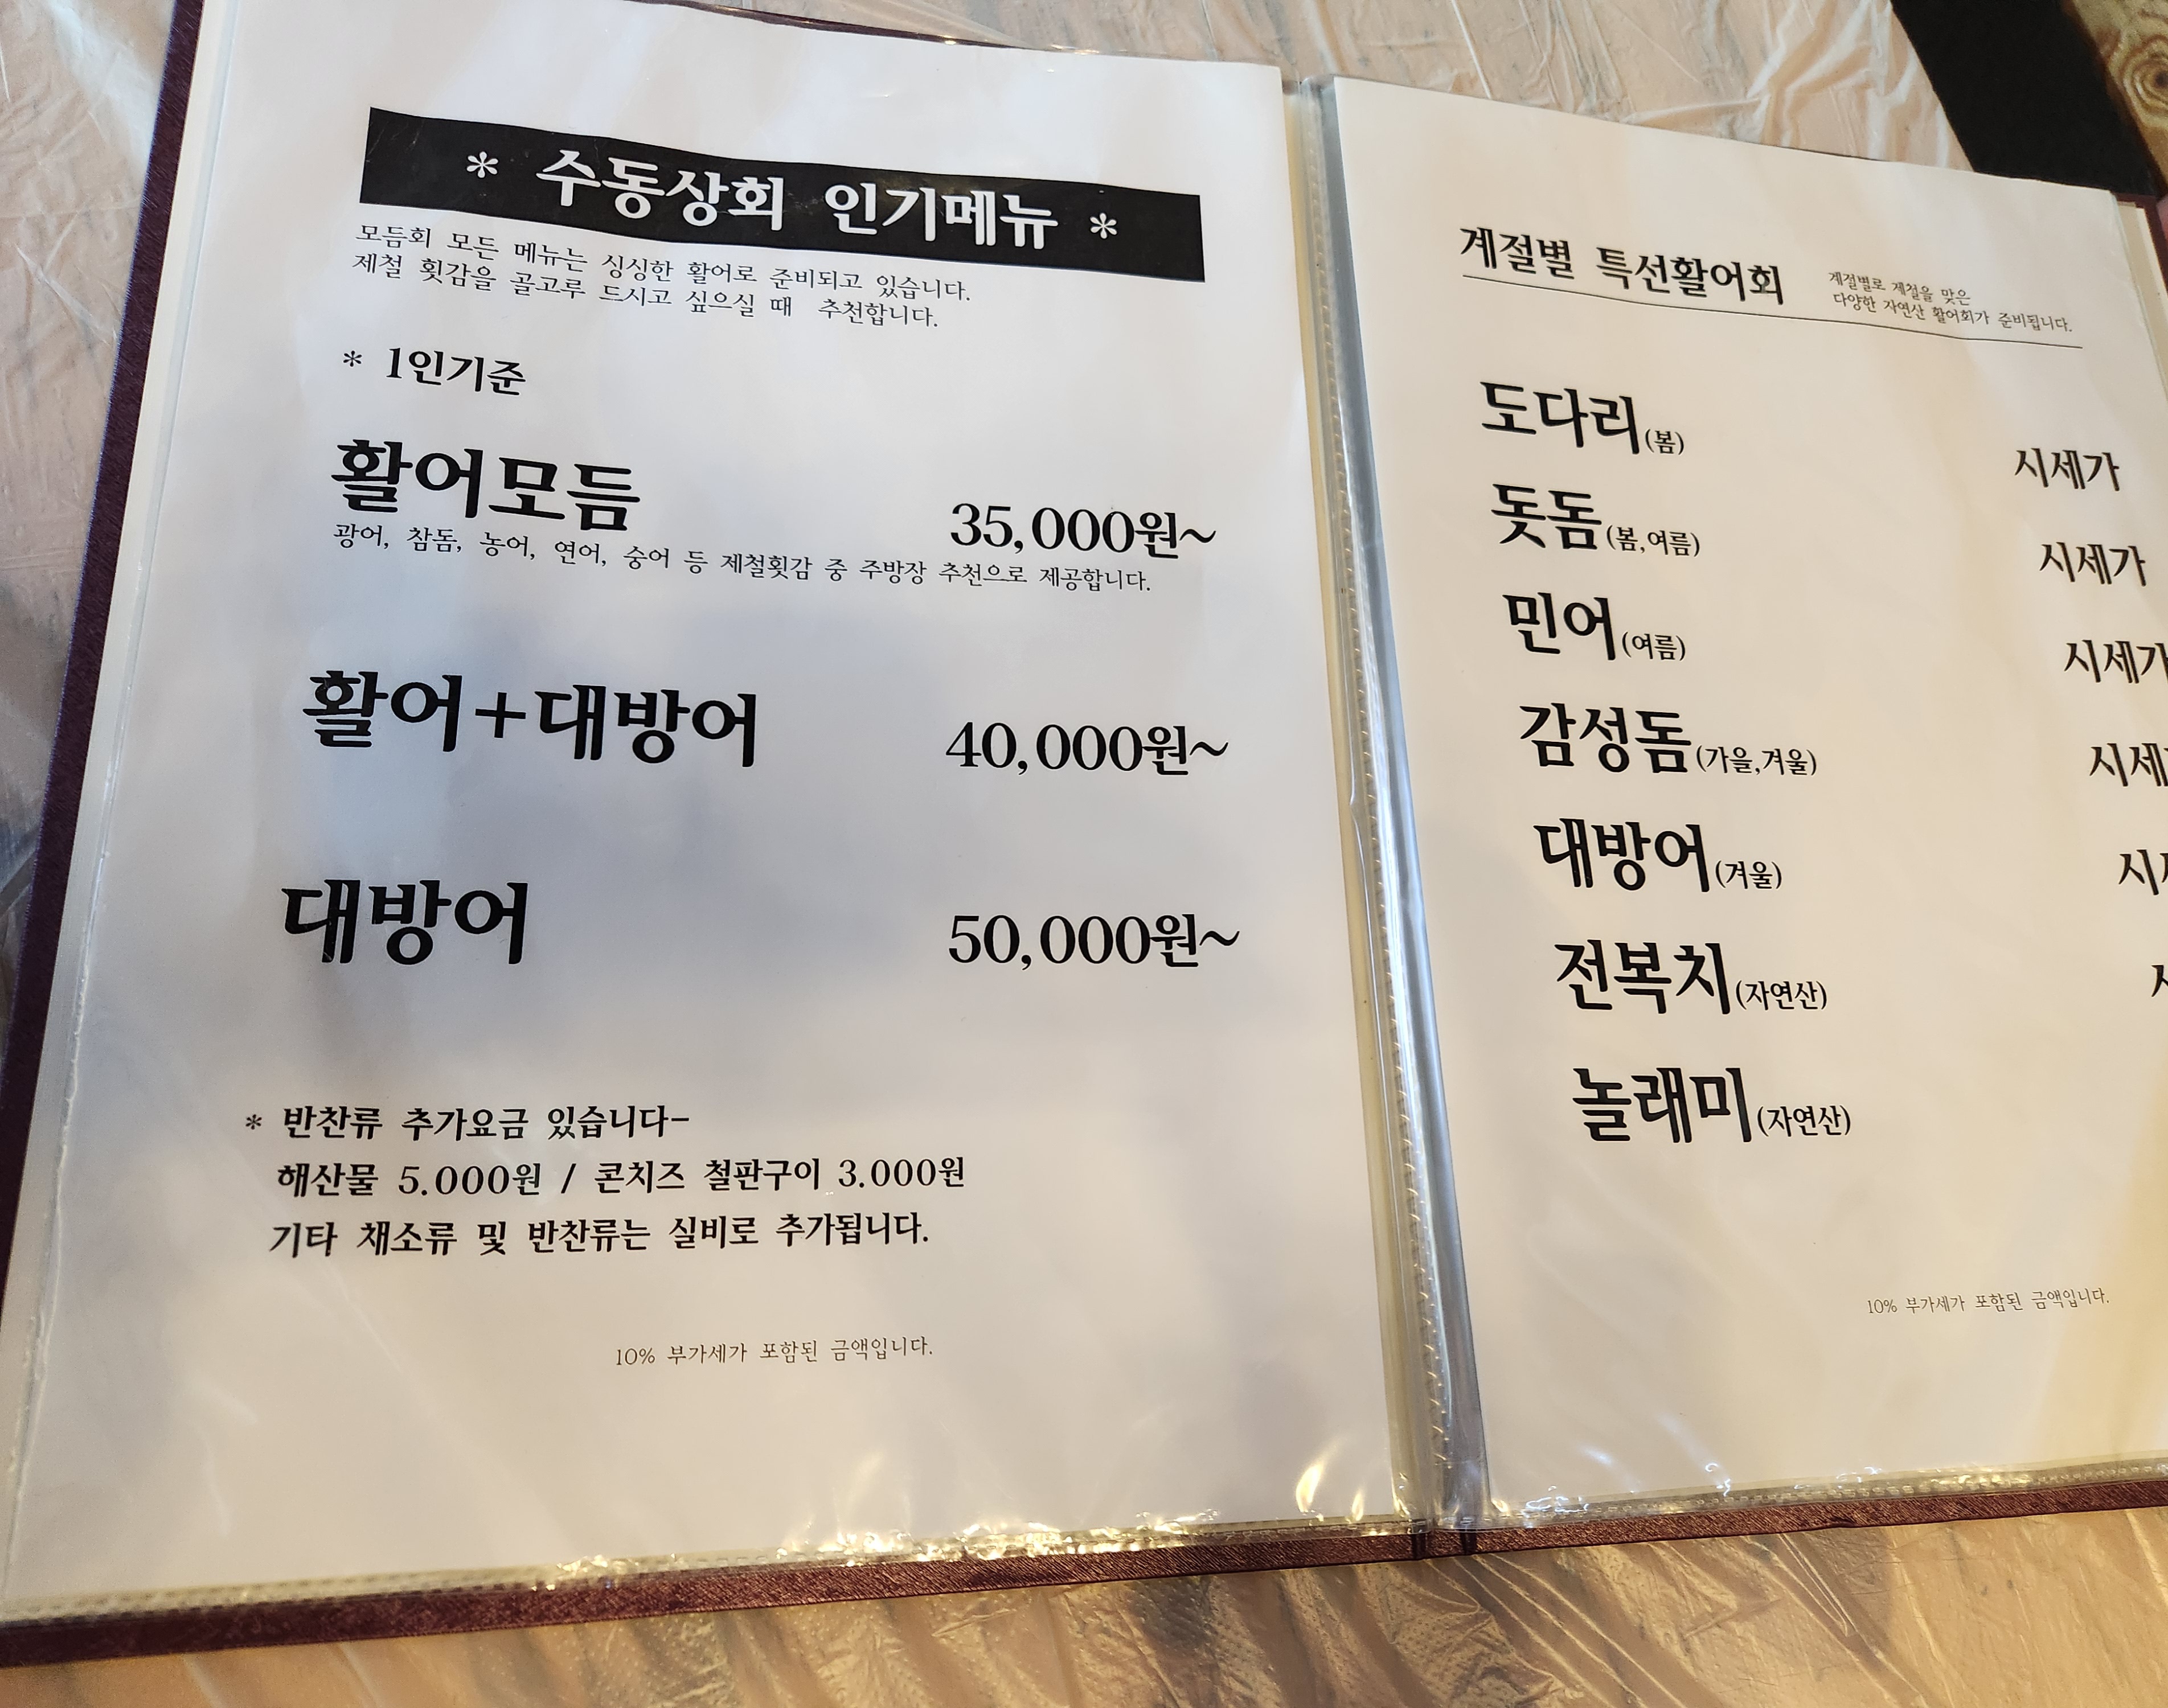 * 수동상회 인기메뉴 *
모듬회 모든 메뉴는 싱싱한 활어로 준비되고 있습니다.
제철 횟감을 골고루 드시고 싶으실 때 추천합니다.
* 1인기준
활어모듬 35,000원~
광어, 참돔, 농어, 연어, 숭어 등 제철횟감 중 주방장 추천으로 제공합니다.
활어+대방어 40,000원~
대방어 50,000원~
* 반찬류 추가요금 있습니다-
해산물 5.000원 / 콘치즈 철판구이 3.000원
기타 채소류 및 반찬류는 실비로 추가됩니다.
10% 부가세가 포함된 금액입니다.
계절별 특선활어회
계절별로 제철을 맞은
다양한 자연산 활어회가 준비됩니다.
도다리(봄) 시세가
돗돔(봄,여름) 시세가
민어(여름) 시세가
감성돔(가을,겨울) 시세
대방어(겨울) 시
전복치(자연산)
놀래미(자연산)
10% 부가세가 포함된 금액입니다.